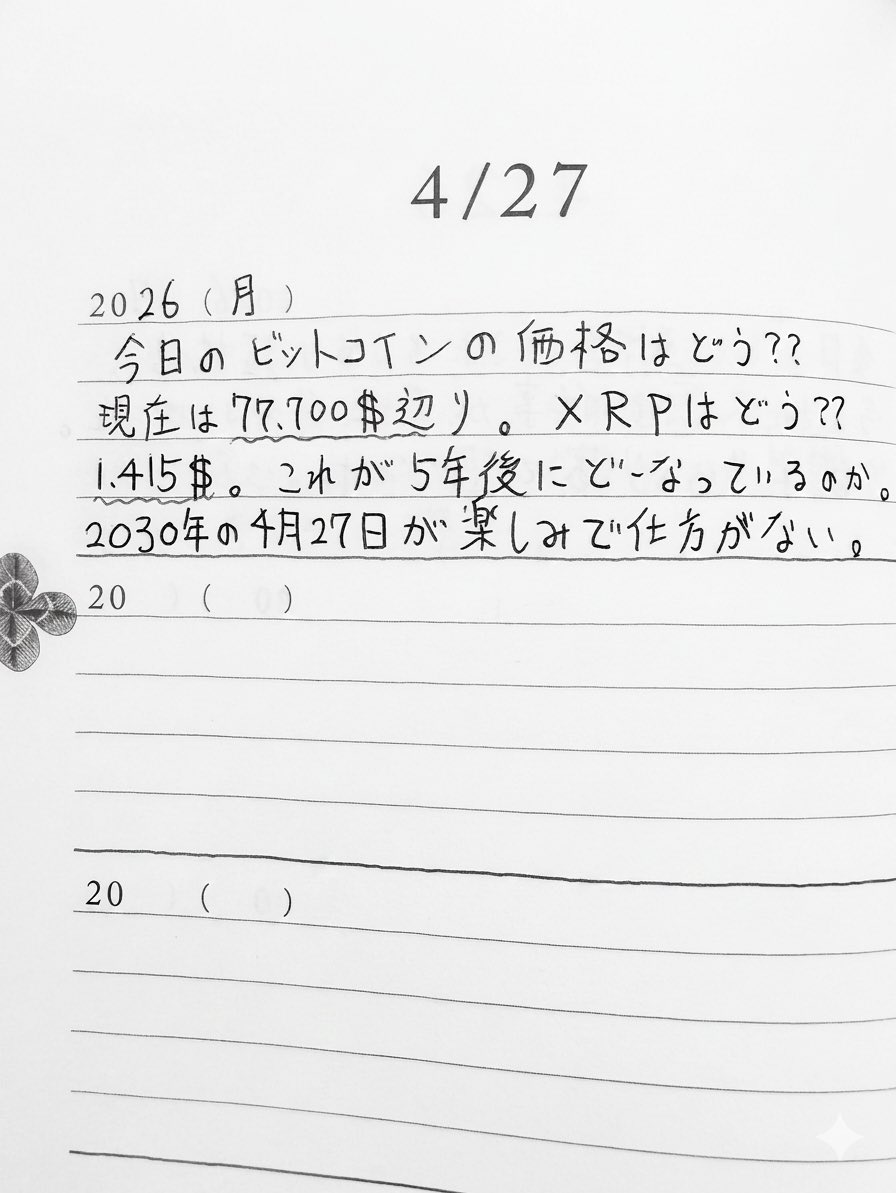 4/27
2026（月）
今日のビットコインの価格はどう??
現在は77.700$辺り。XRPはどう??
1.415$。これが5年後にどーなっているのか。
2030年の4月27日が楽しみで仕方がない。
20 （ ）
20 （ ）